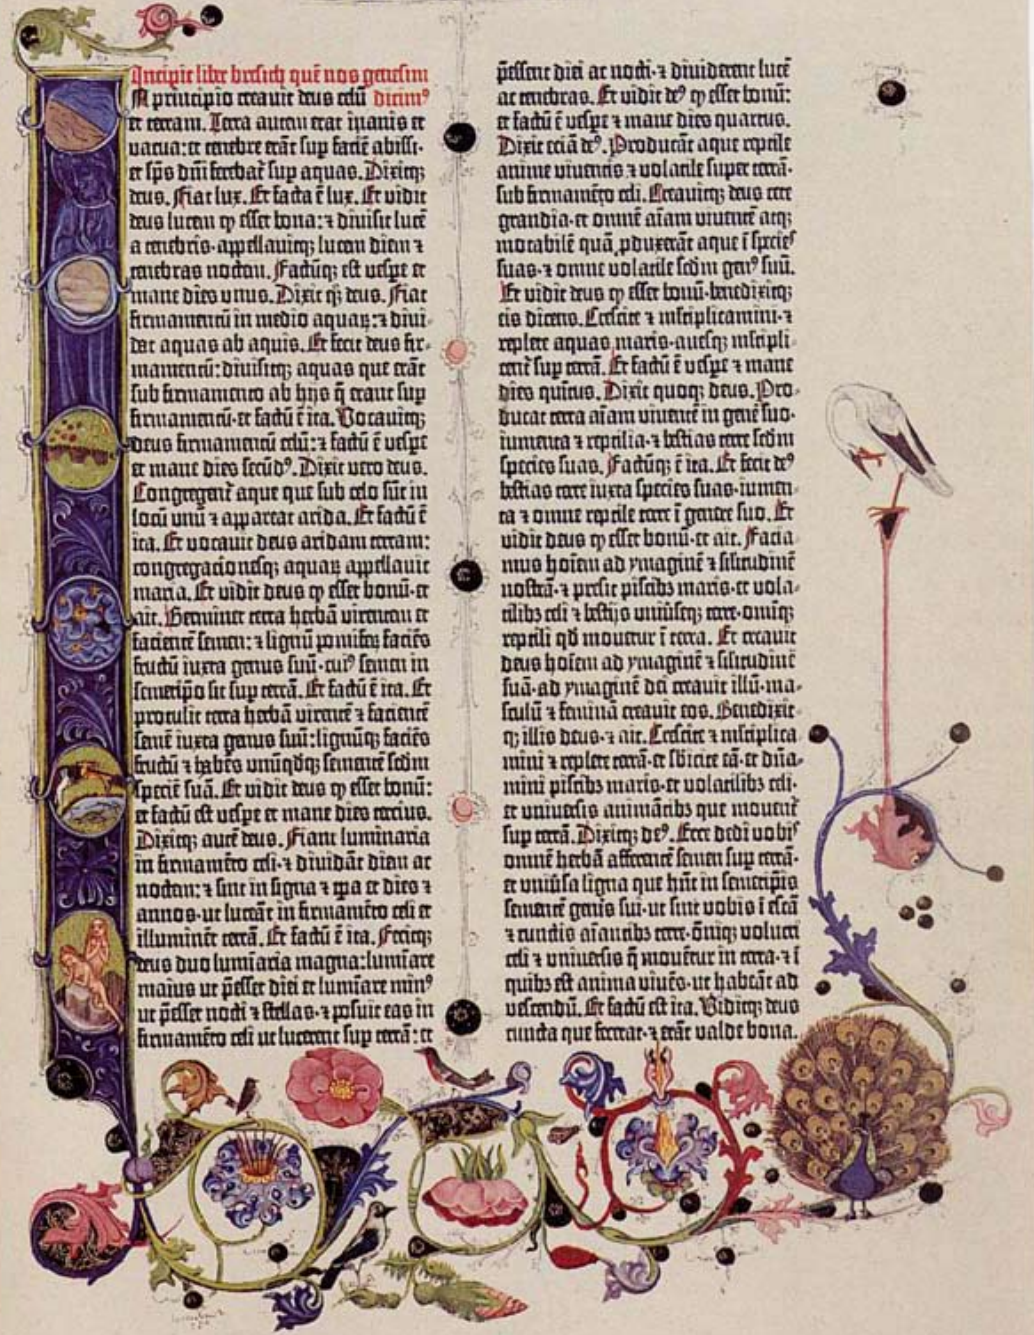 Incipit liber bresich quē nos genesim
N principio creavit deus celū dicim⁹
et terram. Terra autem erat inanis et
vacua: et tenebre erāt sup faciē abissi·
et sp̄s dn̄i ferebat᷑ sup aquas. Dixitqꝫ
deus. Fiat lux. Et facta ē lux. Et vidit
deus lucem ꝙ esset bona: ⁊ divisit lucē
a tenebris· appellavitqꝫ lucem diem ⁊
tenebras noctem. Factūqꝫ est vespe et
mane dies unus. Dixit qꝫ deus. Fiat
firmamentū in medio aquaꝝ: ⁊ divi-
dat aquas ab aquis. Et fecit deus fir-
mamentū: divisitqꝫ aquas que erāt
sub firmamento ab hijs q̄ erant sup
firmamentū· et factū ē ita. Vocavitqꝫ
deus firmamentū celū: ⁊ factū ē vespe
et mane dies secūd⁹. Dixit vero deus.
Congregent᷑ aque que sub celo sūt in
locū unū ⁊ appareat arida. Et factū ē
ita. Et vocavit deus aridam terram:
congregacionesqꝫ aquaꝝ appellavit
maria. Et vidit deus ꝙ esset bonū· et
ait. Germinet terra herbā virentem et
facientē semen: ⁊ lignū pomifeꝝ faciēs
fructū iuxta genus suū· cui⁹ semen in
semetipō sit sup terrā. Et factū ē ita. Et
protulit terra herbā virentē ⁊ facientē
semē iuxta genus suū: lignūqꝫ faciēs
fructū ⁊ habēs unūqdqꝫ sementē scdm
speciē suā. Et vidit deus ꝙ esset bonū:
et factū est vespe et mane dies tercius.
Dixitqꝫ autē deus. Fiant luminaria
in firmamēto celi· ⁊ dividāt diem ac
noctem: ⁊ sint in signa ⁊ tp̄a et dies ⁊
annos· ut luceāt in firmamēto celi et
illuminēt terrā. Et factū ē ita. Fecitqꝫ
deus duo lumīaria magna: lumīare
maius ut p̄esset diei et lumīare min⁹
ut p̄esset nocti ⁊ stellas· ⁊ posuit eas in
firmamēto celi ut lucerent sup terrā: et
p̄essent diei ac nocti· ⁊ dividerent lucē
ac tenebras. Et vidit de⁹ ꝙ esset bonū:
et factū ē vespe ⁊ mane dies quartus.
Dixit eciā de⁹. Producāt aque reptile
anime viventis ⁊ volatile super terrā·
sub firmamēto celi. Creavitqꝫ deus cete
grandia· et omnē aīam viventē atqꝫ
motabilē quā ꝓduxerāt aque ī species
suas· ⁊ omne volatile scdm gen⁹ suū.
Et vidit deus ꝙ esset bonū· benedixitqꝫ
eis dicens. Crescite ⁊ mĺtiplicamini· ⁊
replete aquas maris· avesqꝫ mĺtipli-
cent᷑ sup terrā. Et factū ē vespe ⁊ mane
dies quītus. Dixit quoqꝫ deus. Pro-
ducat terra aīam viventē in genē suo·
iumenta ⁊ reptilia· ⁊ bestias terre scdm
species suas. Factūqꝫ ē ita. Et fecit de⁹
bestias terre iuxta species suas· iumen-
ta ⁊ omne reptile terre ī genere suo. Et
vidit deus ꝙ esset bonū· et ait. Facia-
mus hoīem ad ymaginē ⁊ siĺitudinē
nostrā· ⁊ presit piscibꝫ maris· et vola-
tilibꝫ celi ⁊ bestijs univ̄seqꝫ terre· omīqꝫ
reptili qd̄ movetur ī terra. Et creavit
deus hoīem ad ymaginē ⁊ siĺitudinē
suā· ad ymaginē dei creavit illū· ma-
sculū ⁊ feminā creavit eos. Benedixit-
qꝫ illis deus· ⁊ ait. Crescite ⁊ mĺtiplica-
mini ⁊ replete terrā· et sbicite eā· et dn̄a-
mini piscibꝫ maris· et volatilibꝫ celi·
et universis animātibꝫ que movent᷑
sup terrā. Dixitqꝫ de⁹. Ecce dedi vobis
omnē herbā afferentē semen sup terrā·
et univ̄sa ligna que hn̄t in semetip̄is
sementē gen̄is sui· ut sint vobis ī escā
⁊ cunctis aīantibꝫ terre· ōniqꝫ volucri
celi ⁊ universis q̄ moventur in terra· ⁊ ī
quibꝫ est anima vivēs· ut habeāt ad
vescendū. Et factū est ita. Viditqꝫ deus
cuncta que fecerat· ⁊ erāt valde bona.